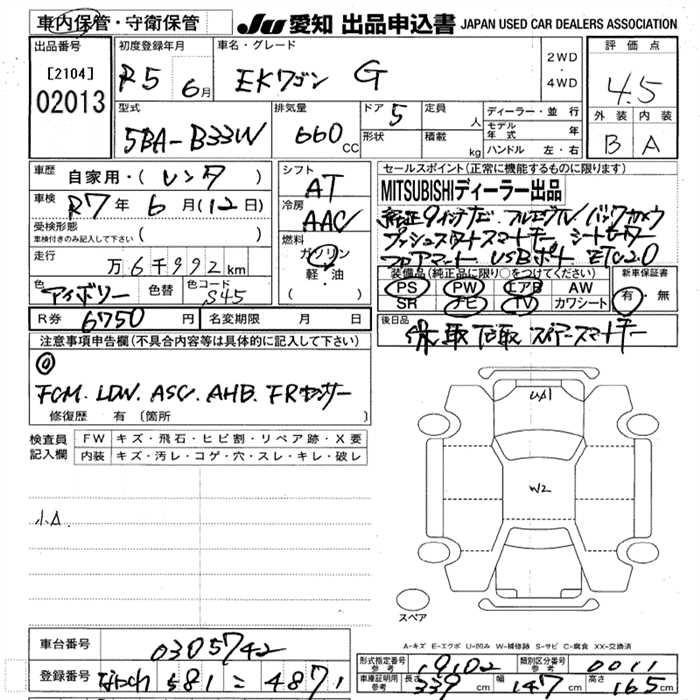 車内保管・守衛保管
JU 愛知 出品申込書 JAPAN USED CAR DEALERS ASSOCIATION
出品番号
[2104]
02013
初度登録年月
R5 6月
車名・グレード
EKワゴン G
2WD
・
4WD
評価点
4.5
外装 内装
B A
型式
5BA-B33W
排気量
660cc
ドア 5
形状
定員 人
積載 kg
ディーラー・並行
モデル年式 年
ハンドル 左・右
車歴 自家用・(レンタ)
車検 R7年 6月(12日)
受検形態
車検付きのみ記入して下さい ( )
走行 万6千992km
色 アイボリー 色替 色コード S45
シフト AT
冷房 AAC
燃料
ガソリン
軽・油
( )
セールスポイント(正常に機能するものに限ります)
MITSUBISHIディーラー出品
純正9インチナビ フルセグTV バックカメラ
プッシュスタートスマートキー シートヒーター
フロアマット USBポート ETC2.0
装備品(純正品に限り○をつけてください)
PS PW エアB AW
SR ナビ TV カワシート
新車保証書
有・無
R券 6750円 名変期限 月 日
後日品
保 取 記取 スペアースマートキー
注意事項申告欄(不具合内容等は具体的に記入して下さい)
FCM. LDW. ASC. AHB. FRセンサー
修復歴 有 〔箇所 〕
検査員記入欄
FW キズ・飛石・ヒビ割・リペア跡・X要
内装 キズ・汚レ・コゲ・穴・スレ・キレ・破レ
小A
U/A1
W2
スペア
A-キズ E-エクボ U-凹み W-補修跡 S-サビ C-腐食 XX-交換済
車台番号 0305742
登録番号 581 = 4871
形式指定番号 参考 19102 類別区分番号 参考 0011
車庫証明用 参考 長さ 339cm 幅 147cm 高さ 165cm